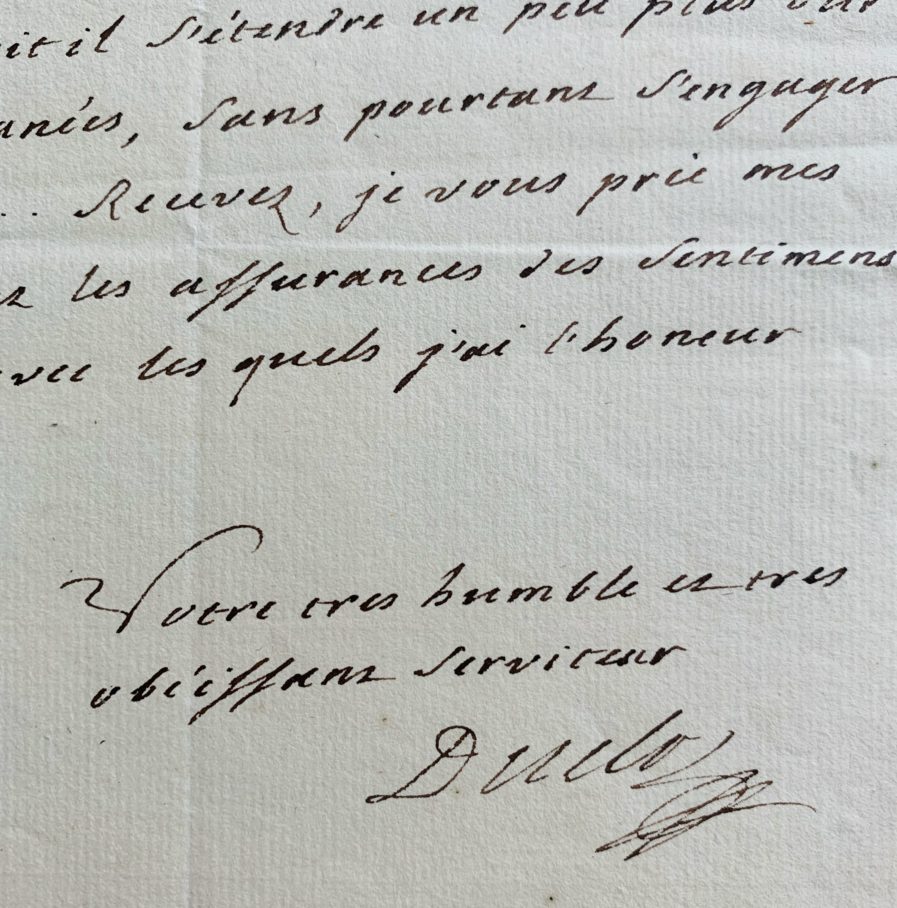 s'étendre un peu plus sur
sans pourtant s'engager
... Recevez, je vous prie mes
les assurances des sentimens
avec les quels j'ai l'honeur
Votre tres humble et tres
obéissant serviteur
Duclos